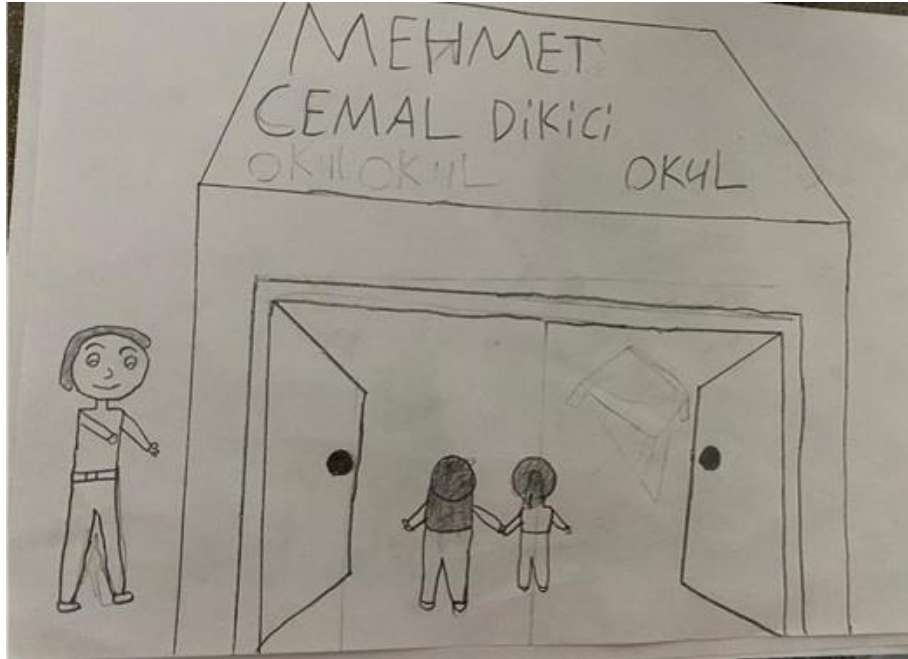 MEHMET
CEMAL DiKiCi
OKUL OKUL OKUL